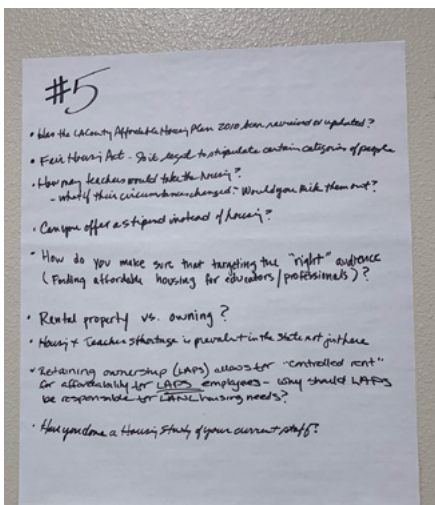 #5
• Has the LA County Affordable Housing Plan 2010 been reviewed or updated?
• Fair Housing Act - Is it legal to stipulate certain categories of people
• How many teachers would take the housing?
- what if their circumstances changed? Would you kick them out?
• Can you offer a stipend instead of housing?
• How do you make sure that targeting the "right" audience
(Finding affordable housing for educators/professionals)?
• Rental property vs. owning?
• Housing + Teacher shortage is prevalent in the State not just here
• Retaining ownership (LAPS) allows for "controlled rent"
for affordability for LAPS employees - why should LAPS
be responsible for LANL housing needs?
• Have you done a Housing Study of your current staff?